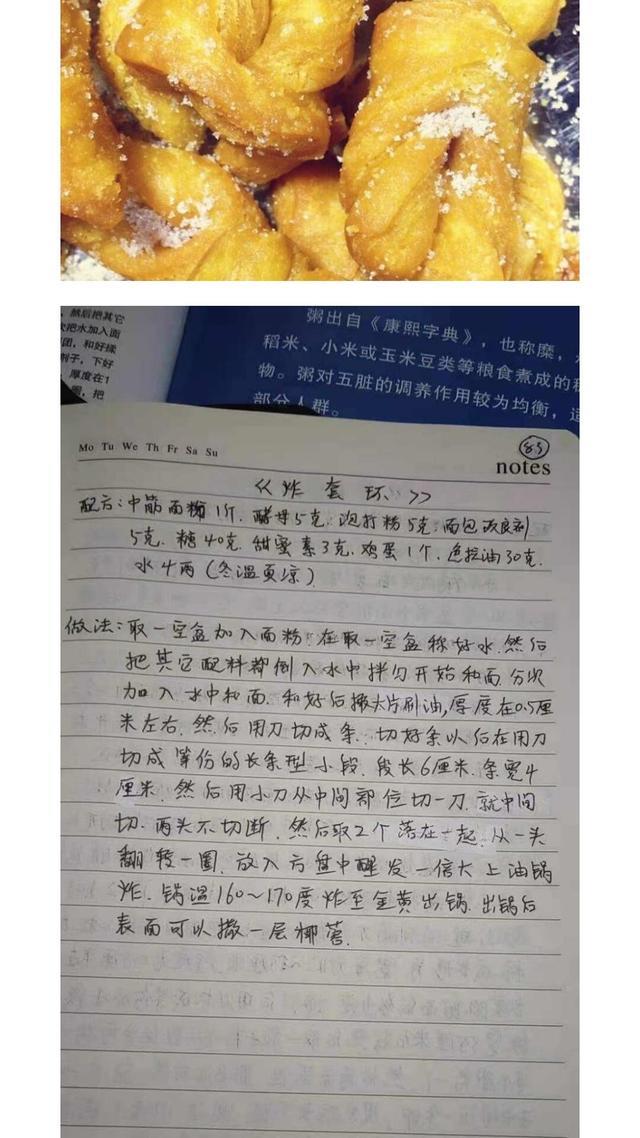 ，然后把其它
次把水加入面
团，和好揉
剂子，下好
厚度在1
圈，把
粥出自《康熙字典》，也称糜，
稻米、小米或玉米豆类等粮食煮成的稠
物。粥对五脏的调养作用较为均衡，适
部分人群。
Mo Tu We Th Fr Sa Su
notes
《炸套环》
配方：中筋面粉1斤．酵母5克．泡打粉5克．面包改良剂
5克．糖40克．甜蜜素3克．鸡蛋1个．色拉油30克．
水4两（冬温夏凉）
做法：取一空盆加入面粉．在取一空盆称好水．然后
把其它配料都倒入水中拌匀开始和面．分次
加入水中和面．和好后擀大片刷油，厚度在0.5厘
米左右．然后用刀切成条．切好条以后在用刀
切成等份的长条型小段．段长6厘米．条宽4
厘米．然后用小刀从中间部位切一刀．就中间
切．两头不切断．然后取2个落在一起．从一头
翻转一圈．放入方盘中醒发一倍大上油锅
炸．锅温160～170度炸至金黄出锅．出锅后
表面可以撒一层椰蓉．